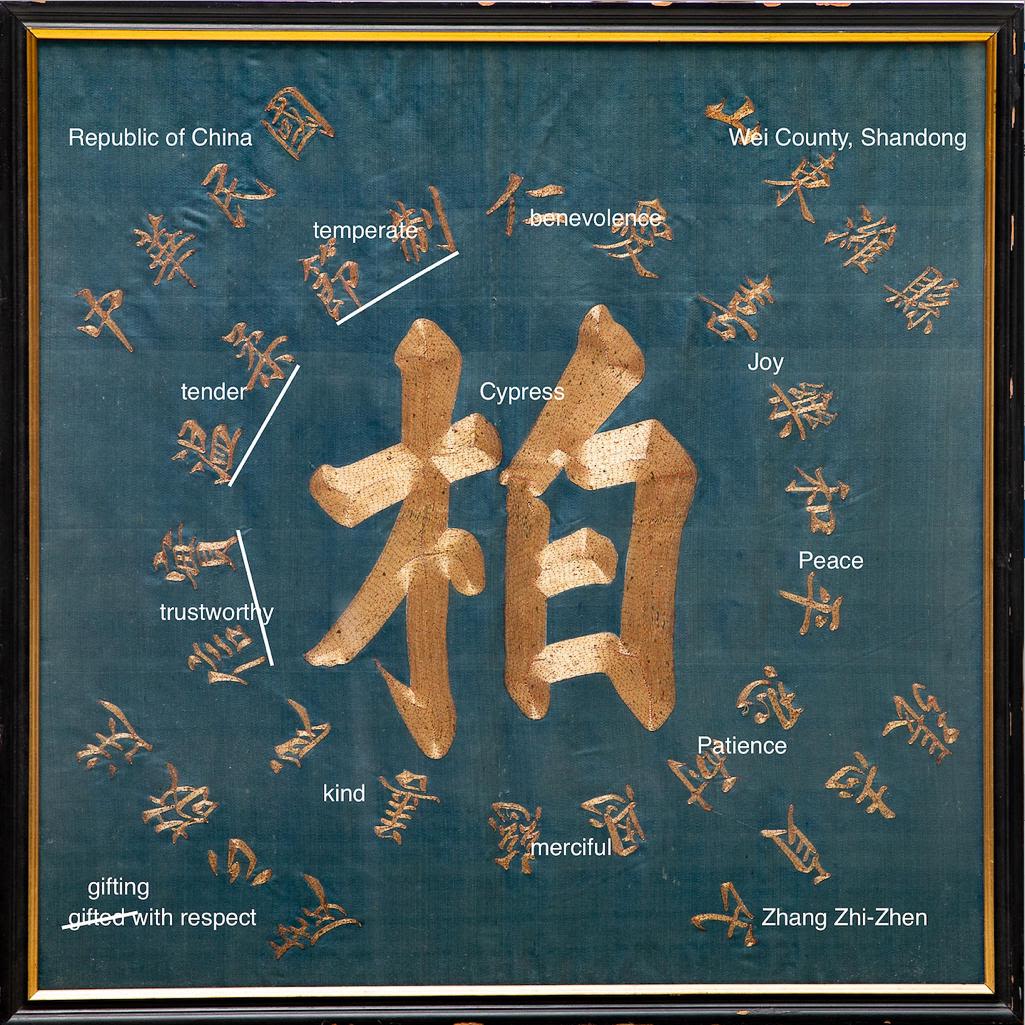 Republic of China
中華民國
Wei County, Shandong
山東濰縣
temperate
節制
benevolence
仁愛
Joy
喜樂
tender
溫柔
Cypress
柏
Peace
和平
trustworthy
信實
Patience
忍耐
kind
良善
merciful
恩慈
gifting
gifted with respect
Zhang Zhi-Zhen
張志貞